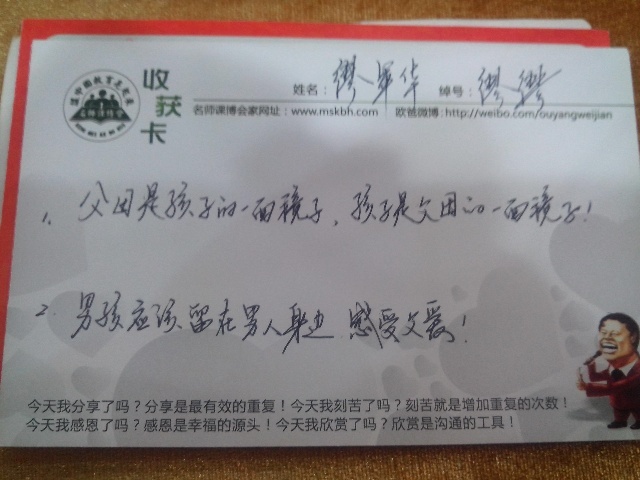 收获卡
姓名：缪军华 绰号：缪缪
名师课博会家网址：www.mskbh.com 欧爸微博：http://weibo.com/ouyangweijian
1、父母是孩子的一面镜子，孩子是父母的一面镜子！
2、男孩应该留在男人身边 感受父爱！
今天我分享了吗？分享是最有效的重复！今天我刻苦了吗？刻苦就是增加重复的次数！
今天我感恩了吗？感恩是幸福的源头！今天我欣赏了吗？欣赏是沟通的工具！